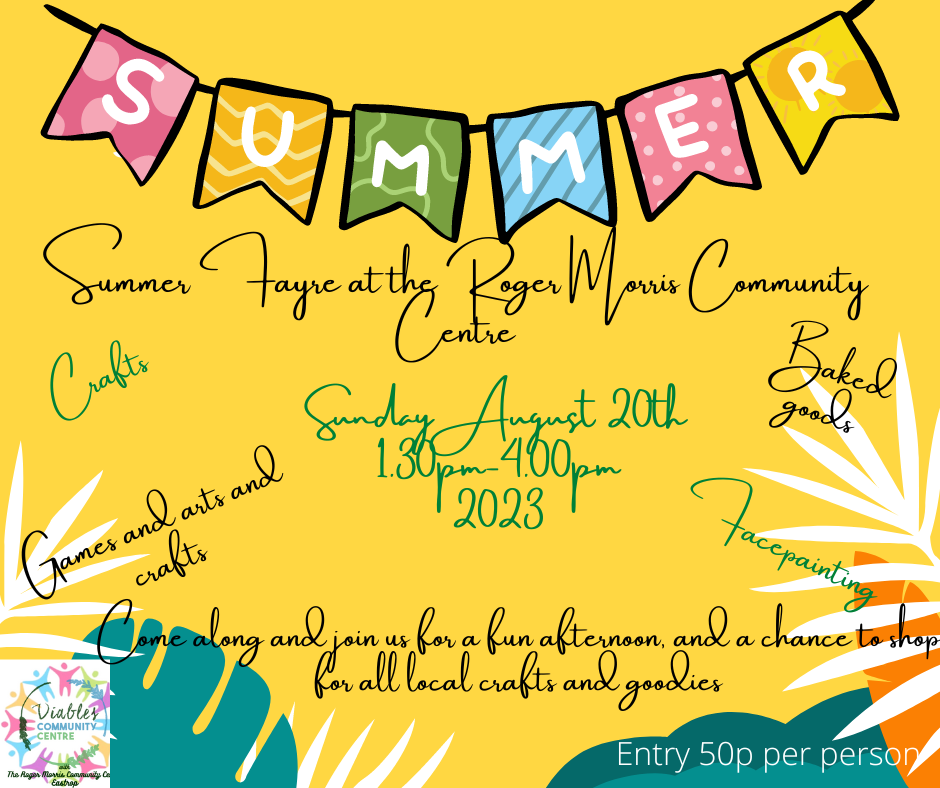 SUMMER
Summer Fayre at the Roger Morris Community
Centre
Crafts
Baked
goods
Sunday August 20th
1.30pm-4.00pm
2023
Games and arts and
crafts
Facepainting
Come along and join us for a fun afternoon, and a chance to shop
for all local crafts and goodies
Viables
COMMUNITY
CENTRE
with
The Roger Morris Community Ce
Eastrop
Entry 50p per person